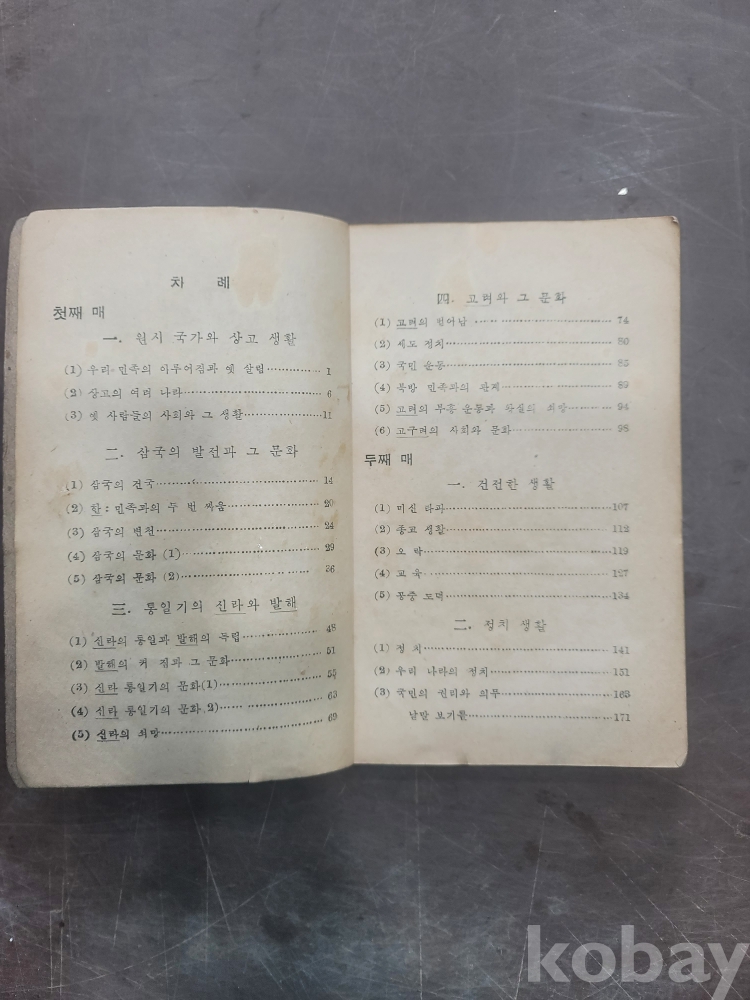 차 례
첫째 매
一. 원시 국가와 상고 생활
(1) 우리 민족의 이루어짐과 옛 살림 1
(2) 상고의 여러 나라 6
(3) 옛 사람들의 사회와 그 생활 11
二. 삼국의 발전과 그 문화
(1) 삼국의 건국 14
(2) 한: 민족과의 두 번 싸움 20
(3) 삼국의 변천 24
(4) 삼국의 문화 (1) 29
(5) 삼국의 문화 (2) 36
三. 통일기의 신라와 발해
(1) 신라의 통일과 발해의 독립 48
(2) 발해의 커 짐과 그 문화 51
(3) 신라 통일기의 문화(1) 55
(4) 신라 통일기의 문화 2) 63
(5) 신라의 쇠망 69
四. 고려와 그 문화
(1) 고려의 일어남 74
(2) 세도 정치 80
(3) 국민 운동 85
(4) 북방 민족과의 관계 89
(5) 고려의 부흥 운동과 왕실의 쇠망 94
(6) 고구려의 사회와 문화 98
두째 매
一. 건전한 생활
(1) 미신 타파 107
(2) 종교 생활 112
(3) 오 락 119
(4) 교 육 127
(5) 공중 도덕 134
二. 정치 생활
(1) 정 치 141
(2) 우리 나라의 정치 151
(3) 국민의 권리와 의무 163
낱말 보기틀 171
kobay